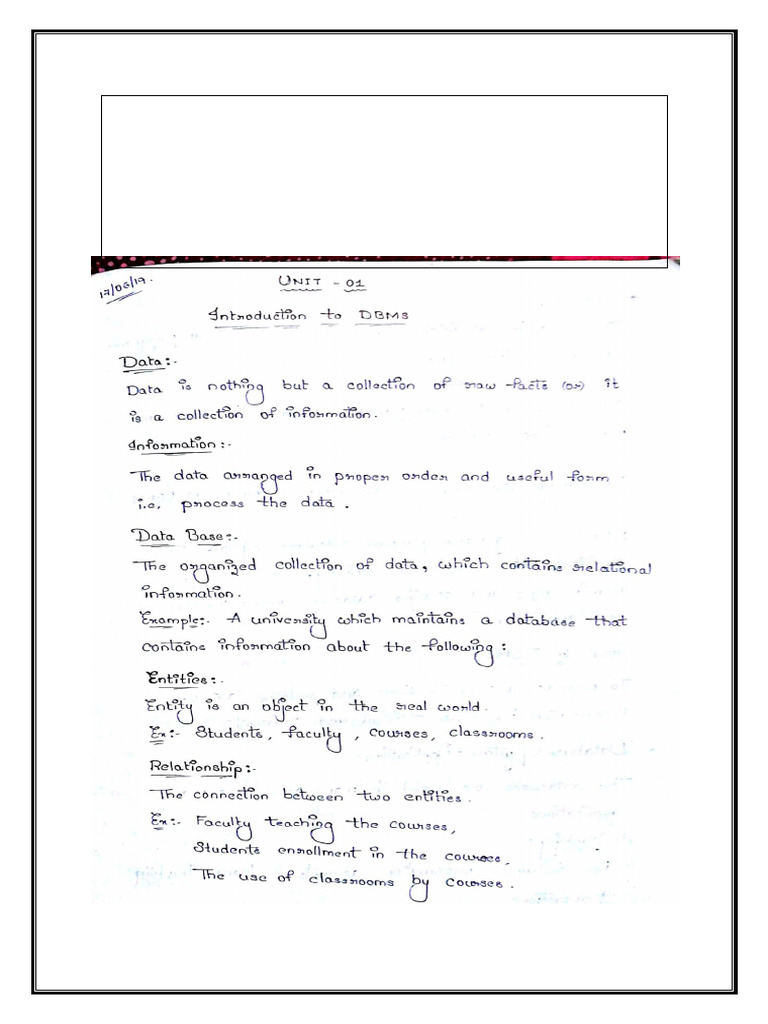 17/06/19.
UNIT - 01
Introduction to DBMS
Data:-
Data is nothing but a collection of raw facts (or) it
is a collection of information.
Information:-
The data arranged in proper order and useful form
i.e. process the data.
Data Base:-
The organized collection of data, which contains relational
information.
Example:- A university which maintains a database that
contains information about the following:
Entities:-
Entity is an object in the real world.
Ex:- Students, faculty, courses, classrooms.
Relationship:-
The connection between two entities.
Ex:- Faculty teaching the courses,
Students enrollment in the courses,
The use of classrooms by courses.